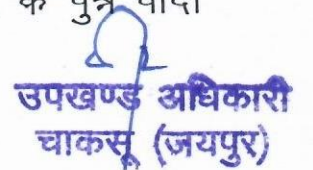 के पुत्र वादी
उपखण्ड अधिकारी
चाकसू (जयपुर)